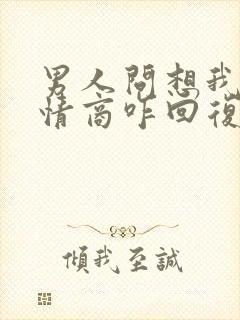 男人問想我
情商咋回復
傾我至誠